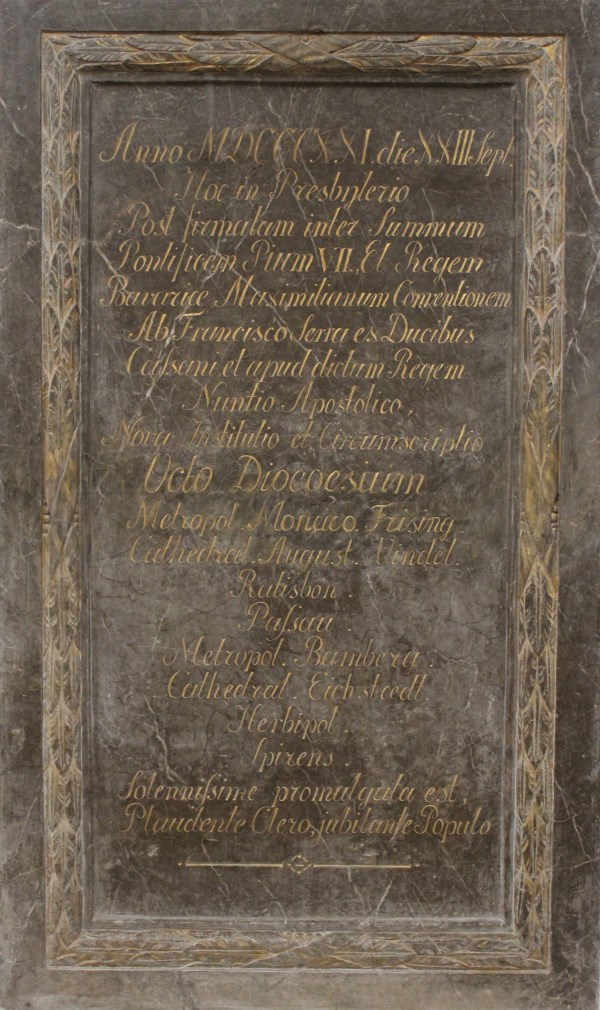 Anno MDCCCXXI. die XXIII Sept.
Hoc in Presbyterio
Post firmatam inter Summum
Pontificem Pium VII., Et Regem
Bavariæ Maximilianum Conventionem
Ab Francisco Serra ex Ducibus
Caſsani et apud dictum Regem
Nuntio Apostolico,
Nova Institutio et Circumscriptio
Octo Dioeoesium
Metropol. Monaco. Frising.
Cathedral. August. Vindel.
Ratisbon.
Paſsau.
Metropol. Bamberg.
Cathedral. Eichstaedt
Herbipol.
Spirens.
Solenniſsime promulgata est,
Plaudente Clero, jubilante Populo